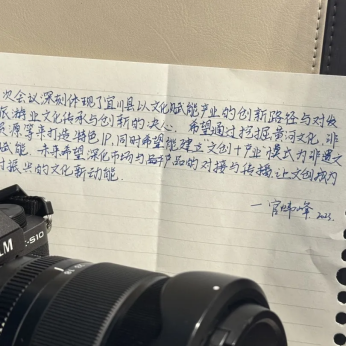 次会议深刻体现了宜川县以文化赋能产业的创新路径与对发
旅游业文化传承与创新的决心。希望通过挖掘黄河文化、非
资源等来打造特色IP,同时希望能建立"文创+产业"模式为非遗文
赋能。未来希望深化市场与产品的对接与传播,让文创成为
村振兴的文化新动能。
一官
2025.
LM
X-S10